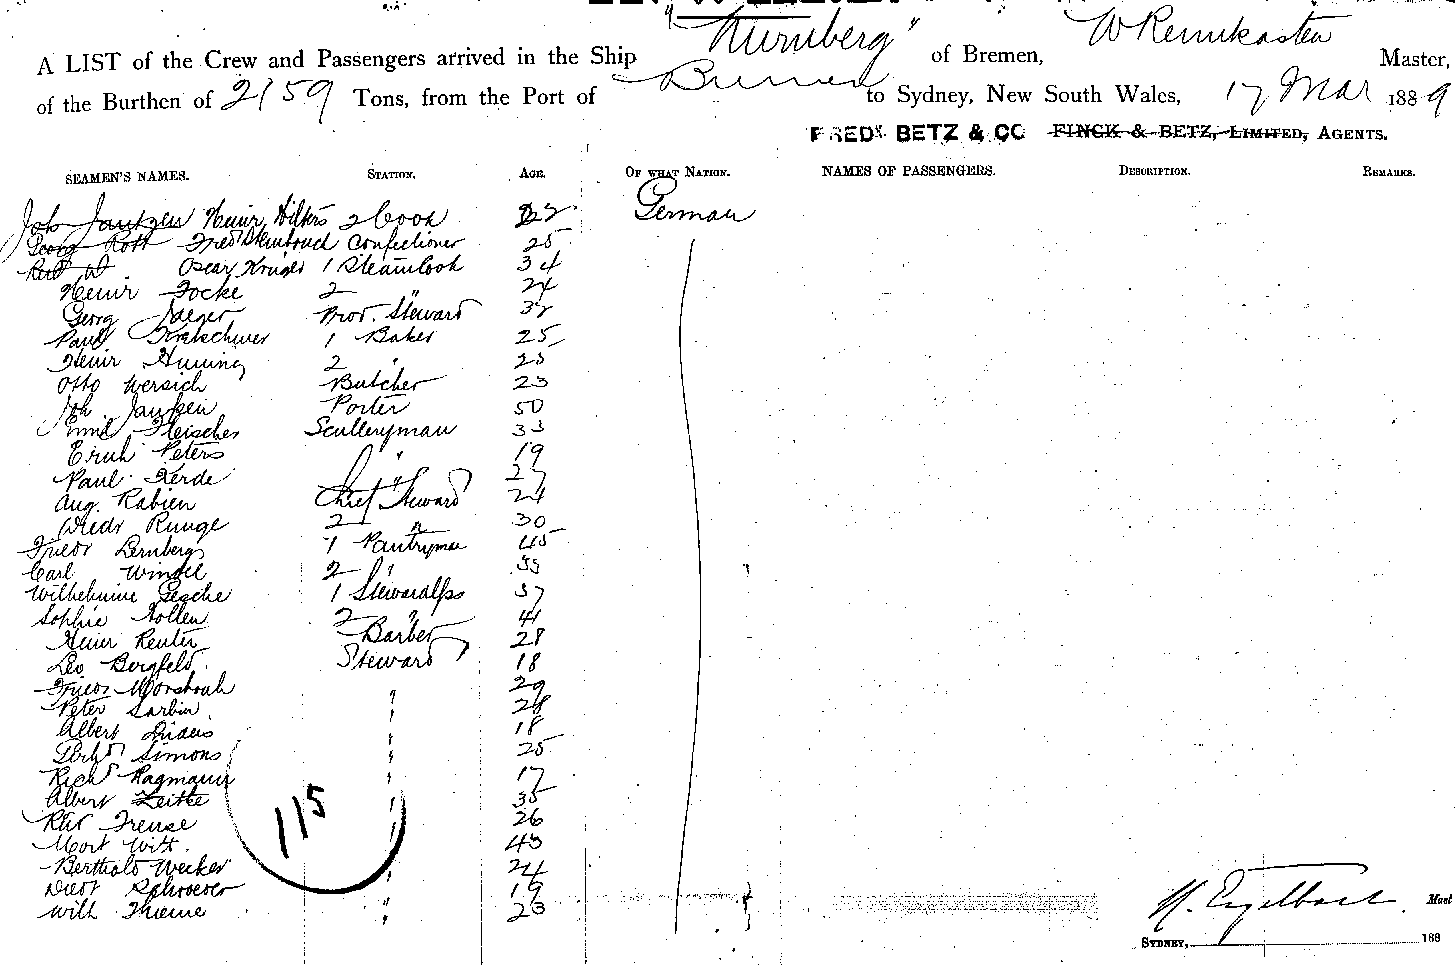 A LIST of the Crew and Passengers arrived in the Ship "Nürnberg" of Bremen, W Renukasten Master,
of the Burthen of 2159 Tons, from the Port of Bremen to Sydney, New South Wales, 17 Mar 1889
FREDK BETZ & CO FINCK & BETZ, LIMITED, AGENTS.
SEAMEN'S NAMES. STATION. AGE. OF WHAT NATION. NAMES OF PASSENGERS. DESCRIPTION. REMARKS.
Joh Jantzen Heinr Hilkers 2 Cook German
Georg Rott Confectioner 25
Oscar Kruger 1 Steamcook 34
Heinr Focke 2 " 24
Georg Jaeger Prov. Steward 32
Paul Kretschmer 1 Baker 25
Heinr 2 " 23
Otto Wersich Butcher 23
Joh. Jantzen Porter 50
Emil Fleischer Sculleryman 33
Erich Peters " 19
Paul Herde 27
Aug. Rabien Chief Steward 24
Diedr Runge 2 " 30
Friedr Dernberg 1 Pantryman 45
Carl Windel 2 " 33
Wilhelmine Gesche 1 Stewardess 37
Sophie Nollen 2 " 41
Heinr Reuter Barber 28
Leo Bergfeld Steward 18
Friedr " 29
Peter Sarbin " 28
Albert " 18
Simons " 25
Richd Hagmann " 17
Albert Zeitke " 35
Frense " 26
Mort Witt. " 43
Berthold Wecker " 24
Diedr Schroeder " 19
Wilh Thieme " 23
115
H. Engelbart. Mast
SYDNEY, 188